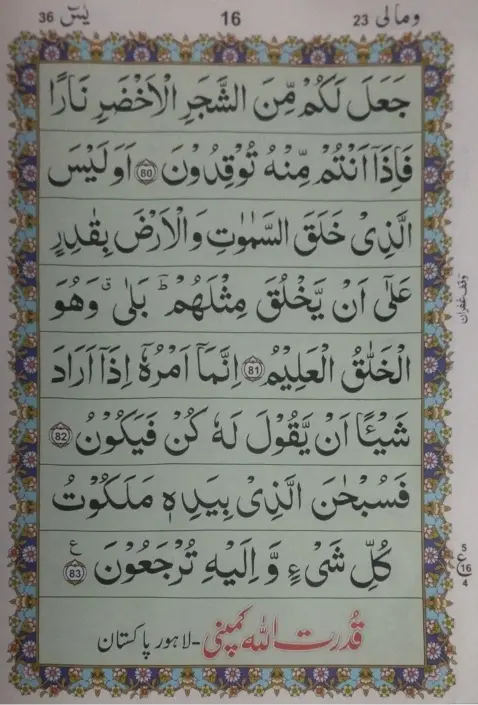 یٰسٓ 36 16 ومالی 23
جَعَلَ لَكُمْ مِّنَ الشَّجَرِ الْاَخْضَرِ نَارًا
فَاِذَاۤ اَنْتُمْ مِّنْهُ تُوْقِدُوْنَ 80 اَوَلَیْسَ
الَّذِیْ خَلَقَ السَّمٰوٰتِ وَالْاَرْضَ بِقٰدِرٍ
عَلٰۤی اَنْ یَّخْلُقَ مِثْلَهُمْ ؕ بَلٰی ۗ وَهُوَ
وقف غفران
الْخَلّٰقُ الْعَلِیْمُ 81 اِنَّمَاۤ اَمْرُهٗۤ اِذَاۤ اَرَادَ
شَیْـًٔا اَنْ یَّقُوْلَ لَهٗ كُنْ فَیَكُوْنُ 82
فَسُبْحٰنَ الَّذِیْ بِیَدِهٖ مَلَكُوْتُ
كُلِّ شَیْءٍ وَّ اِلَیْهِ تُرْجَعُوْنَ 83 ع
5
ع 16
4
قُدرت اللہ کمپنی - لاہور پاکستان